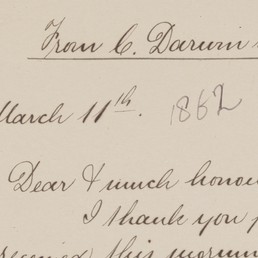 From C. Darwin
March 11th. 1862
Dear & much honou
I thank you
received this morning